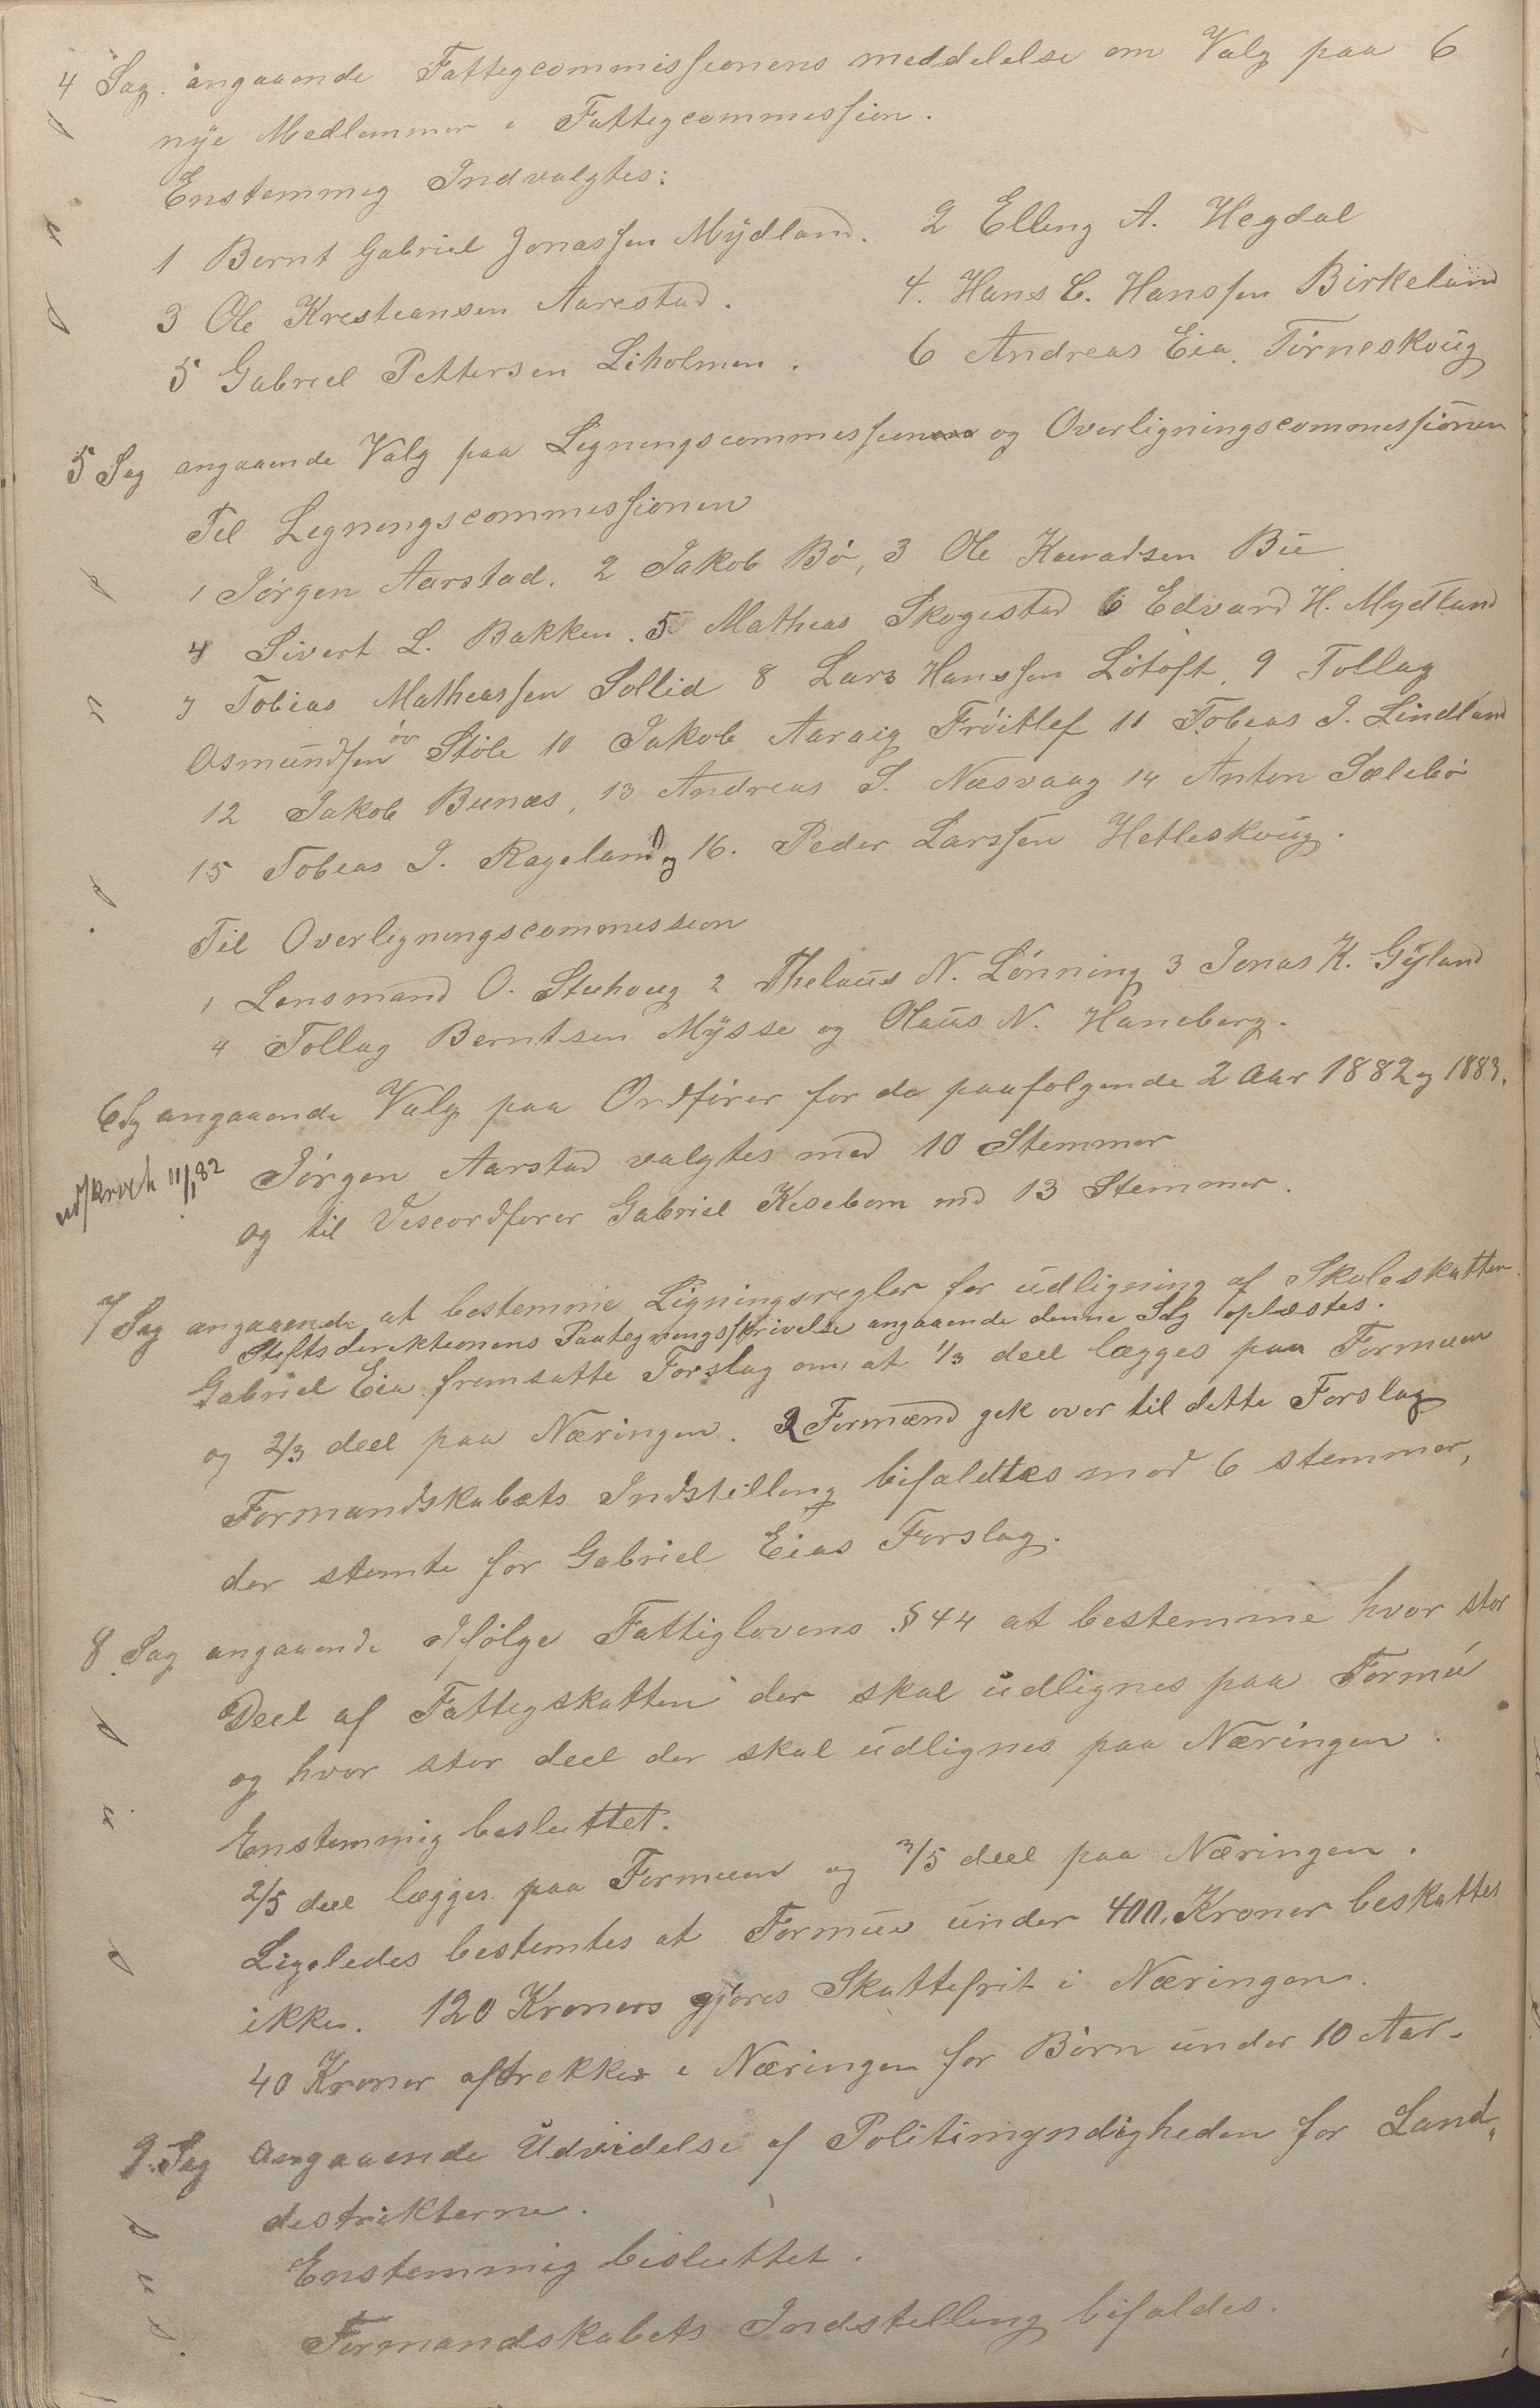 4 Sag angaaende Fattegcommissionens meddelelse om Valg paa 6
nye Medlemmer i Fattegcommission.
Enstemmeg Indvalgtes:
1 Bernt Gabriel Jonassen Mydland. 2 Elleng A. Hegdal
3 Ole Kresteansen Aarestad. 4. Hans C. Hanssen Birkeland
5 Gabreel Pettersen Liholmen. 6 Andreas Eia Törneskoug
5 Sag angaaende Valg paa Legnengscommessionen og Overligningscommessionen
Tel Legnengscommessionen
1 Jörgen Aarstad. 2 Jakob Bö, 3 Ole Bue
4 Sivert L. Bakken. 5 Matheas Skogestad 6 Edvard H. Mydland
7 Tobias Matheassen Sollid 8 Lars Hanssen Lötoft, 9 Tollag
Osmundsen öv Stöle 10 Jakob Aaraig Fröitlef 11 Tobeas J. Lindland
12 Jakob Buenæs, 13 Andreas S. Nesvaag 14 Anton Sælebö
15 Tobeas J. Rageland og 16. Peder Larssen Hetleskoug.
Til Overlegnengscommession
1 Lensmand O. Stuhoug 2 Thelaus N. Lönning 3 Jonas K. Gyland
4 Tollag Berntsen Mysse og Olaus N. Haneberg.
6 Sg angaaende Valg paa Ordförer for de paafolgende 2 Aar 1882 og 1883.
udskrevet 11/1 82
Jörgen Aarstad valgtes med 10 Stemmer
og til Veseordforer Gabriel Kesebom md 13 Stemmer.
7 Sag angaaende at bestemme Ligningsregler for udligning af Skoleskatten.
Steftsderektionens Paategnengsskrivelse angaaende denne Sag oplæstes.
Gabriel Eia fremsatte Forslag om at 1/3 deel lægges paa Formuen
og 2/3 deel paa Næringen. 2 Formænd gek over til dette Forslag
Formandskabets Indstelleng bifaldtes mod 6 stemmer,
der stemte for Gabriel Eias Forslag.
8 Sag angaaende Ifölge Fattiglovens § 44 at bestemme hvor stor
Deel af Fattegskatten der skal udlignes paa Formue
og hvor stor deel der skal udlignes paa Næringen.
Enstemmig besluttet.
2/5 deel lægges paa Formuen og 3/5 deel paa Næringen.
Ligeledes bestemtes at Formue under 400 Kroner beskattes
ikke. 120 Kroners gjöres Skattefrit i Næringen.
40 Kroner aftrekkes i Næringen for Börn under 10 Aar.
9 Sag angaaende Udvidelse af Politimyndigheden for Land„
destrikterne.
Enstemmig besluttet.
Formandskabets Indstelleng bifaldes.